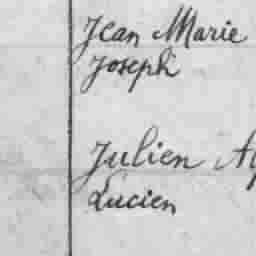 Jean Marie
Joseph
Julien
Lucien